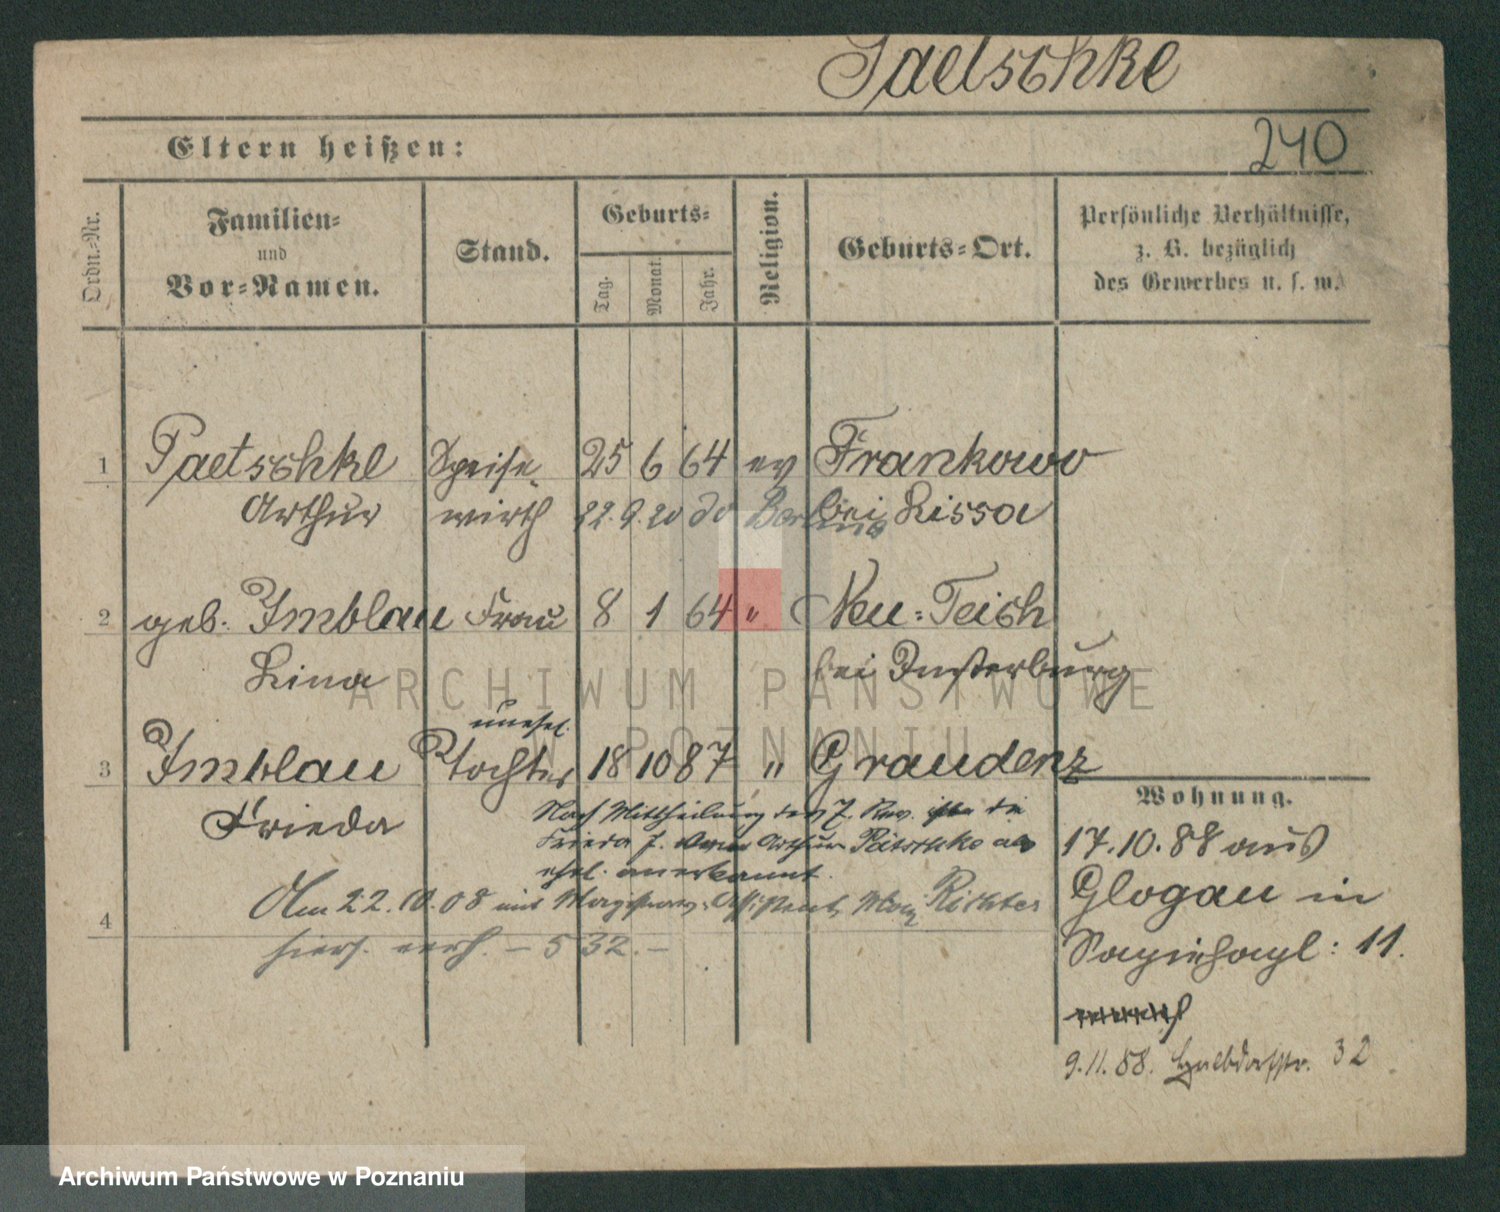 Paetschke
240
Eltern heißen:
Ordn.-Nr.
Familien-
und
Vor-Namen.
Stand.
Geburts-
Tag.
Monat.
Jahr.
Religion.
Geburts-Ort.
Persönliche Verhältnisse,
z. B. bezüglich
des Gewerbes u. s. w.
1 Paetschke Speise- 25 6 64 ev Frankowo
Arthur wirth 22. 9. 20 do Berlin bei Lissa
2 geb. Imblau Frau 8 1 64 " Neu-Teich
Lina bei Insterburg
unehel.
3 Imblau Tochter 18 10 87 " Graudenz
Frieda
Nach Mittheilung des 7. Rev. ist die
Frieda J. vom Arthur Pätschke als
ehel. anerkannt.
4 Am 22. 10. 08 mit Magistrats-Assistent Max Richter
hiers. verh. - 532. -
Wohnung.
17. 10. 88 aus
Glogau in
11.
9. 11. 88. Halbdorfstr. 32
ARCHIWUM PAŃSTWOWE
W POZNANIU
Archiwum Państwowe w Poznaniu